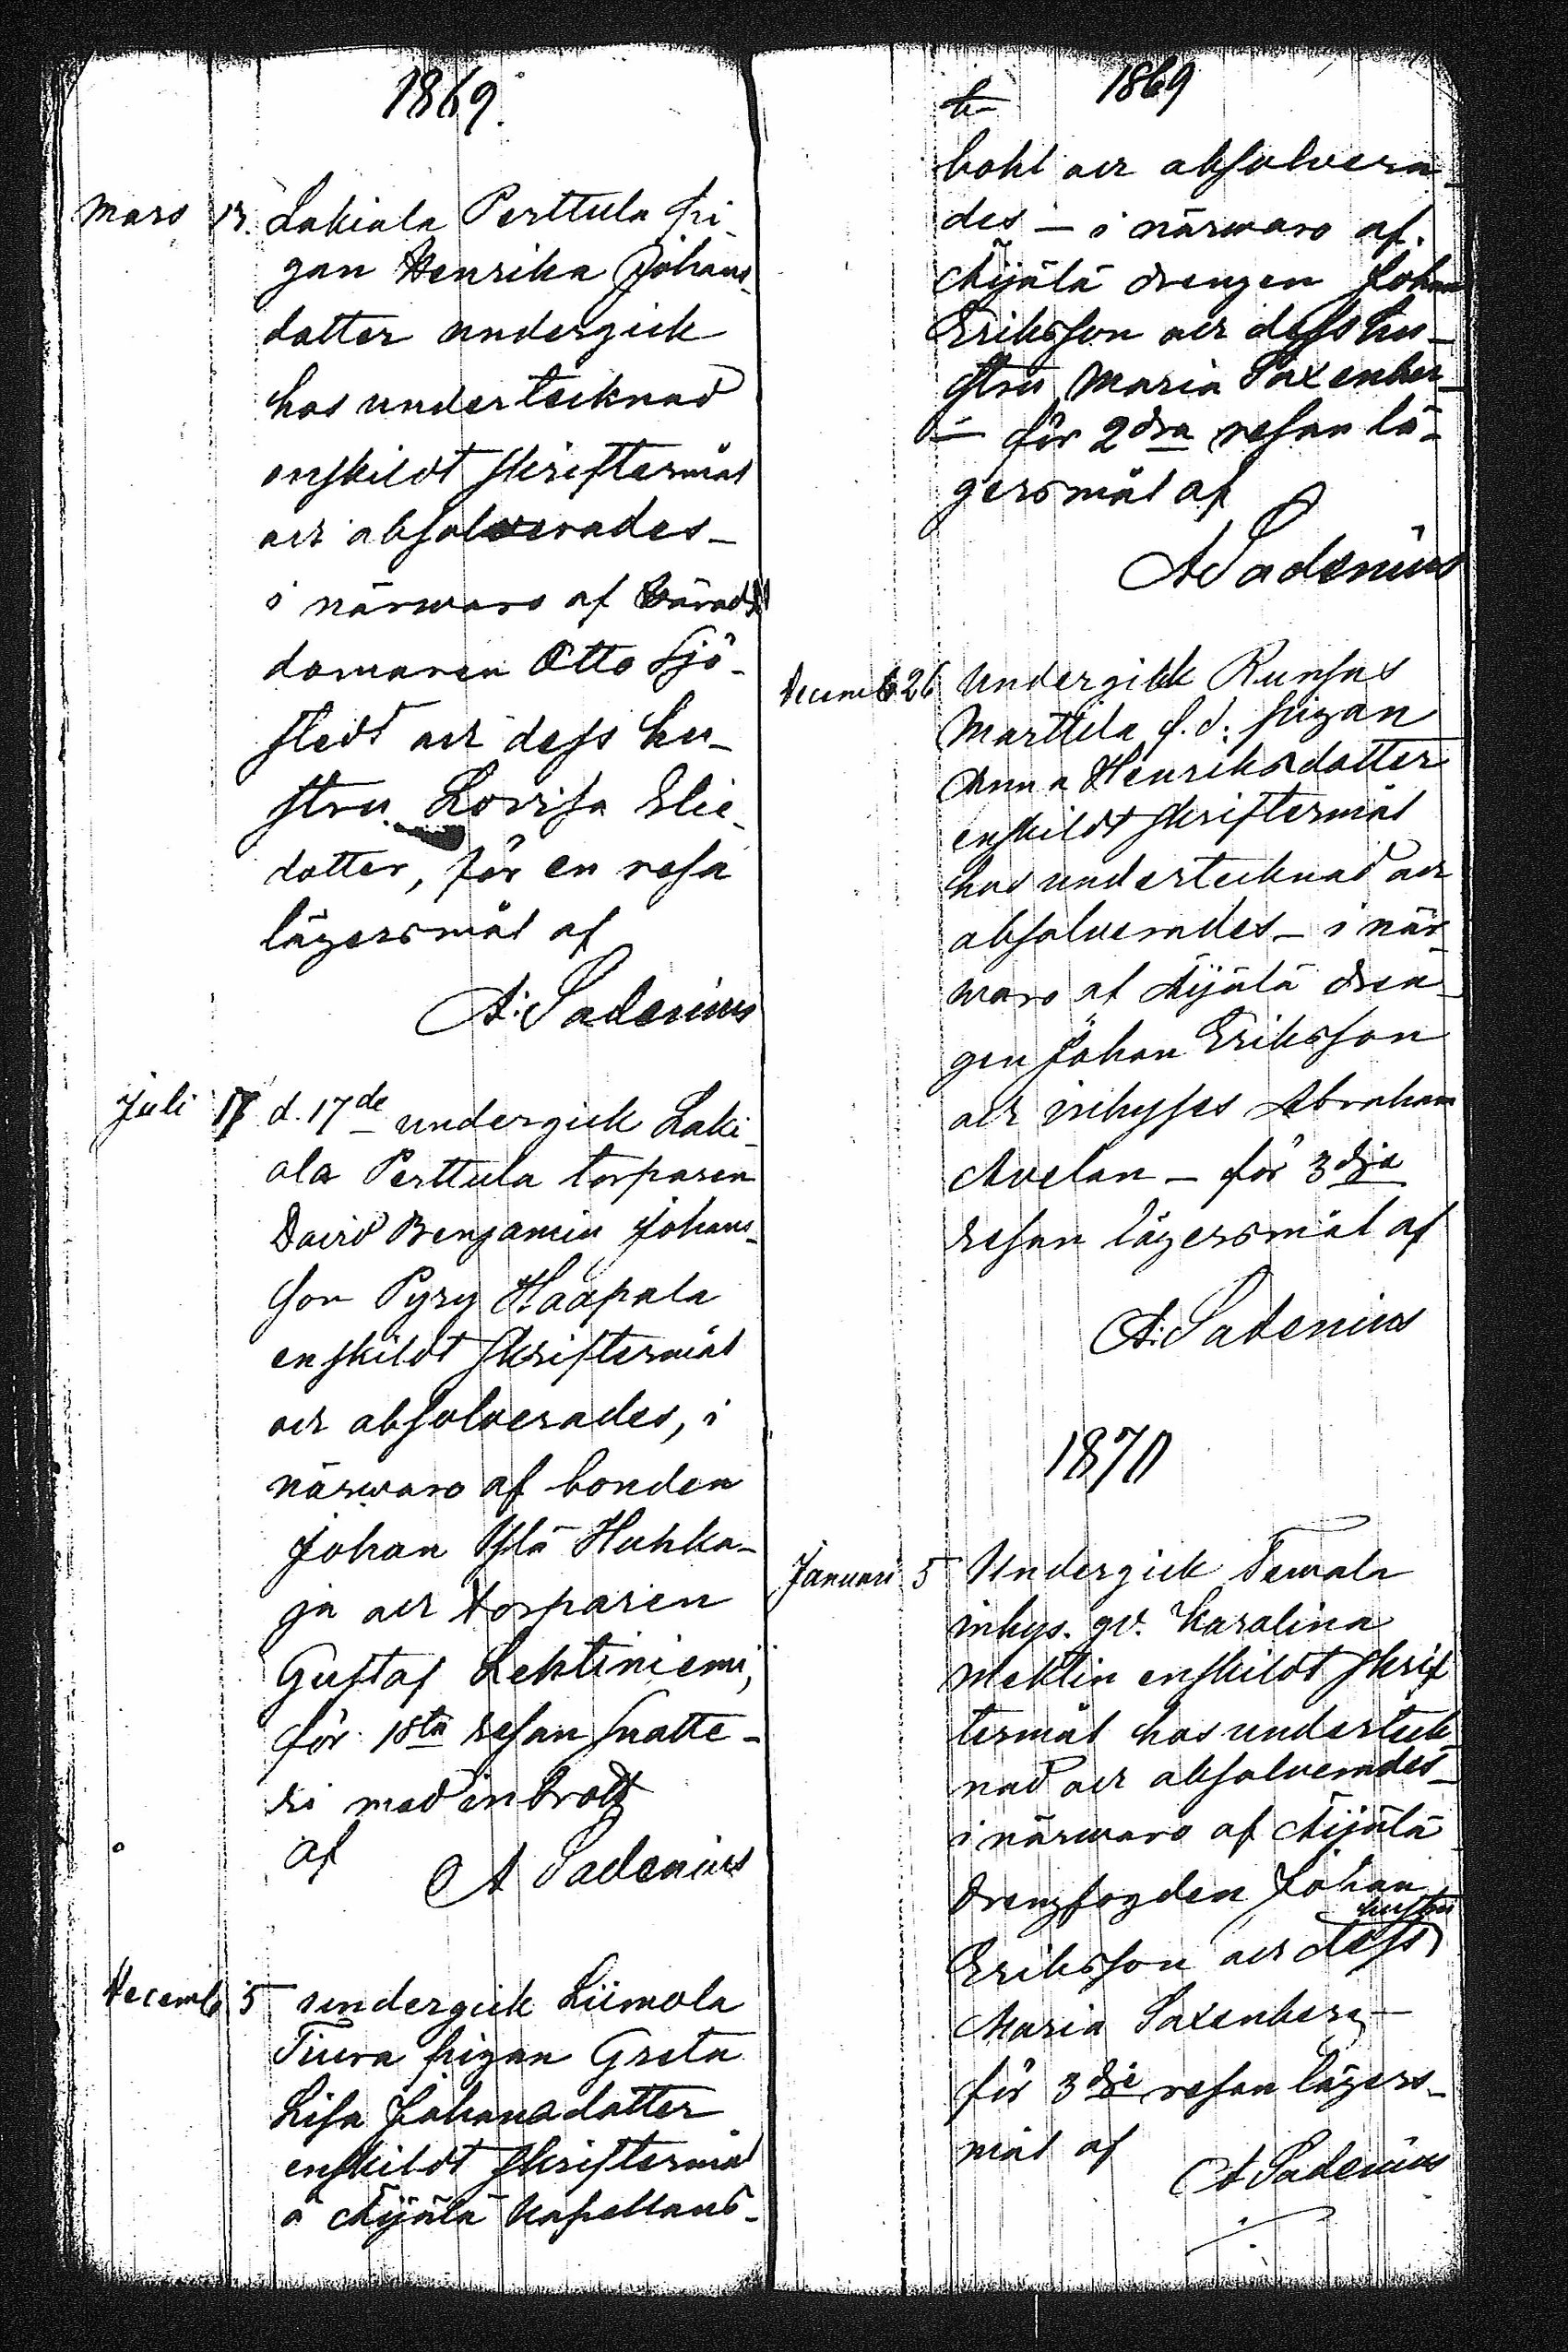 1869.
Mars 13. Lakiala Perttula pi-
gan Henrika Johans-
dotter undergick
hos undertecknad
enskildt skriftermål
och absolverades –
i närwaro af Härads
domaren Otto Sjö-
stedt och dess hu-
stru Lovisa Elie-
dotter, för en resa
lägersmål af
A: Sadenius
Juli 17 d. 17de undergick Laki-
ala Perttula torparen
David Benjamin Johans-
son Pyry Haapala
enskildt skriftermål
och absolverades, i
närwaro af bonden
Johan Ylä Huhka-
ja och torparen
Gustaf Lehtiniemi,
för 1sta resan snatte-
ri med inbrott
af
A Sadenius
Decemb 5 undergick Liimola
Tiura pigan Greta
Lisa Johansdotter
enskildt skriftermål
å Äijälä Kapellans-
1869
bohl och absolvera-
des – i närwaro af
Äijälä drengen Johan
Eriksson och dess hu-
stru Maria Saxenber
– för 2dra resan lä-
gersmål af
A Sadenius
Decemb 26 Undergick Runsas
Marttila f.d. pigan
Anna Henriksdotter
enskildt skriftermål
hos undertecknad och
absolverades – i när-
waro af Äijälä drän-
gen Johan Eriksson
och inhyses Abraham
Avelan – för 3dje
resan lägersmål af
A: Sadenius
1870
Januari 5 Undergick Tewala
inhys. qv. Karolina
Meklin enskildt skrif
termål hos underteck-
nad och absolverades –
i närwaro af Äijälä
Drengfogden Johan
Eriksson och dess hustru
Maria Saxenberg –
för 3dje resan lägers-
mål af
A Sadenius